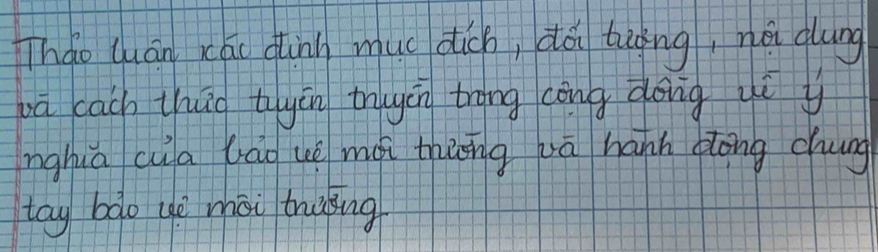 Thảo luận xác định mục đích, đối tượng, nội dung
và cách thức tuyên truyền trong cộng đồng về ý
nghĩa của bảo vệ môi trường và hành động chung
tay bảo vệ môi trường